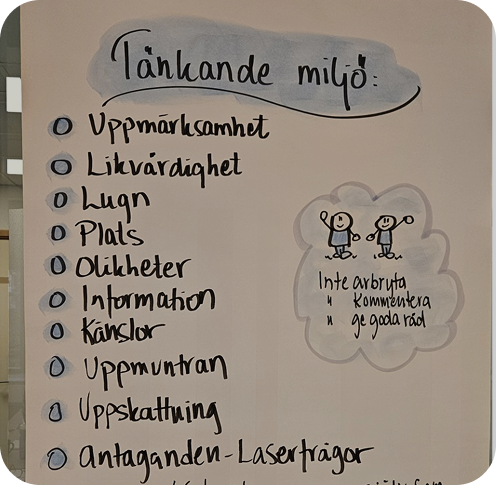 Tänkande miljö:
Uppmärksamhet
Likvärdighet
Lugn
Plats
Olikheter
Information
Känslor
Uppmuntran
Uppskattning
Antaganden - Laserfrågor
Inte avbryta
" kommentera
" ge goda råd